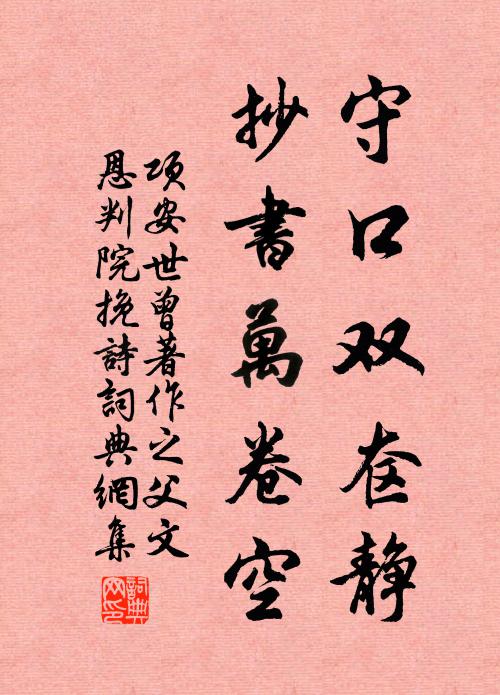 守口双奁静
抄書萬卷空
項安世曾著作之父文
恩判院挽詩詞典網集
詞典
网印